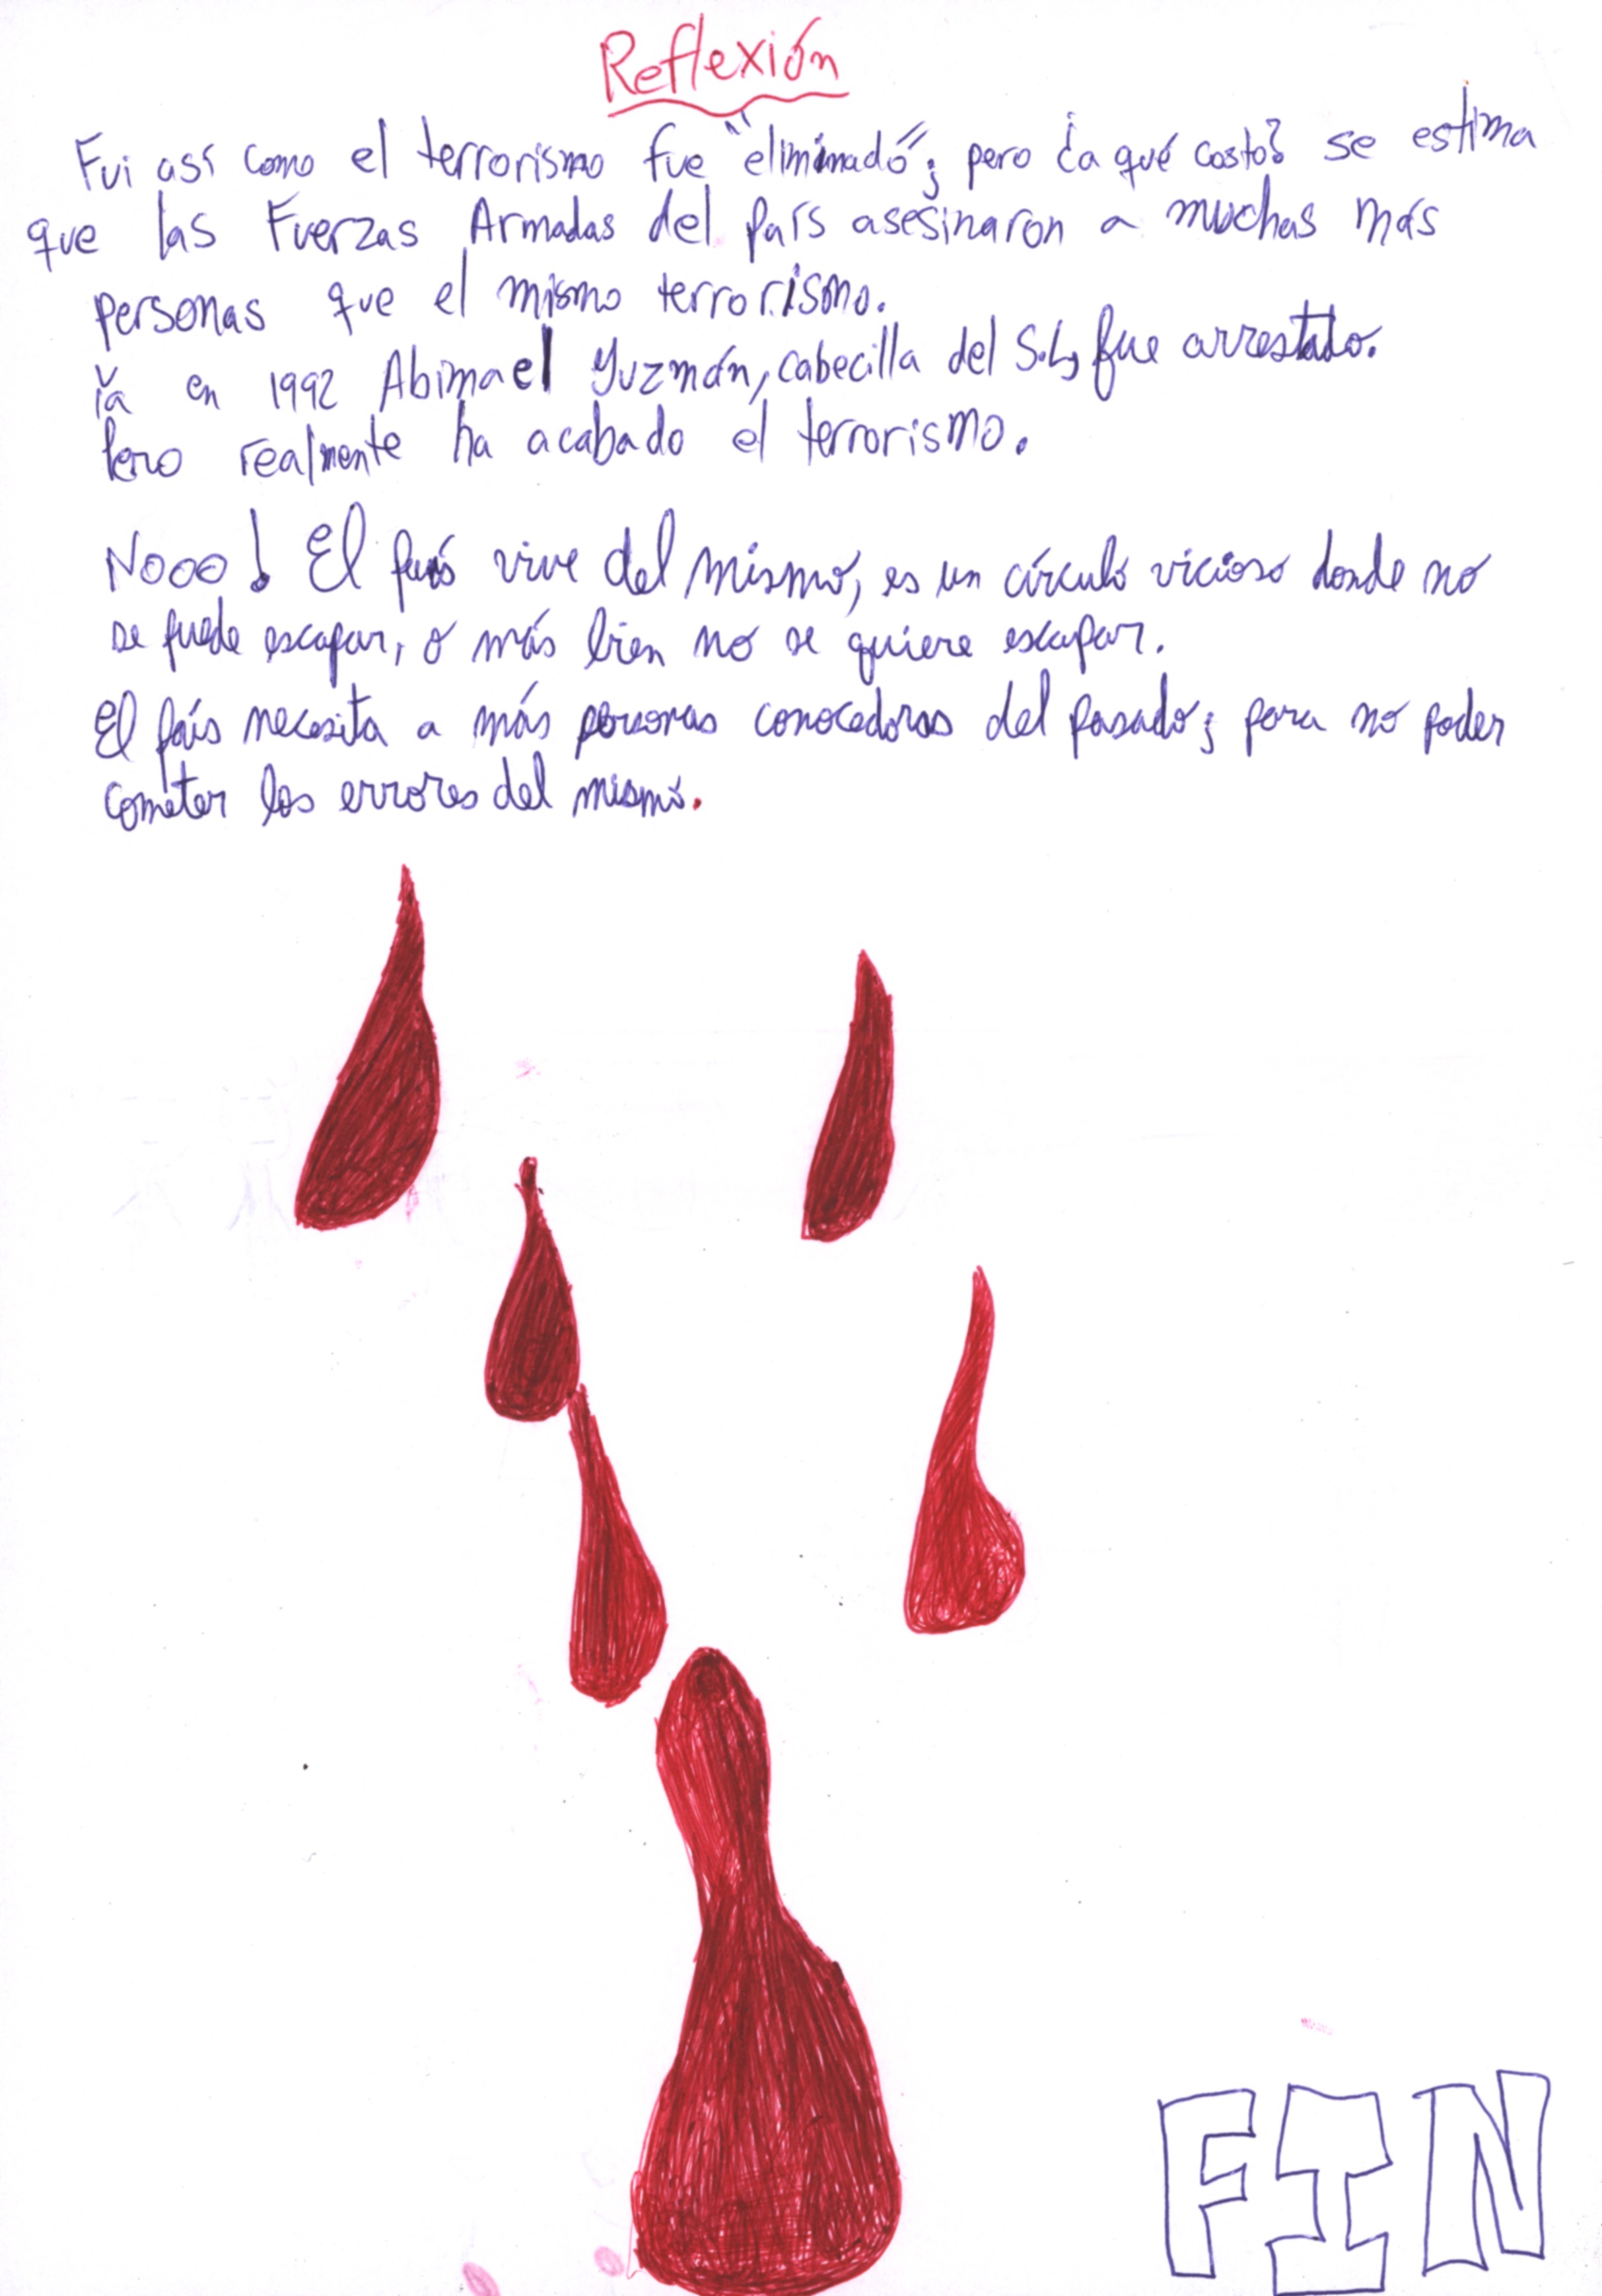 Reflexión
Fui así como el terrorismo fue "eliminado"; pero ¿a qué costo? se estima
que las Fuerzas Armadas del país asesinaron a muchas más
personas que el mismo terrorismo.
Ya en 1992 Abimael Guzmán, cabecilla del S.L, fue arrestado.
Pero realmente ha acabado el terrorismo.
Nooo! El país vive del mismo, es un círculo vicioso donde no
se puede escapar, o más bien no se quiere escapar.
El país necesita a más personas conocedoras del pasado; para no poder
cometer los errores del mismo.
FIN